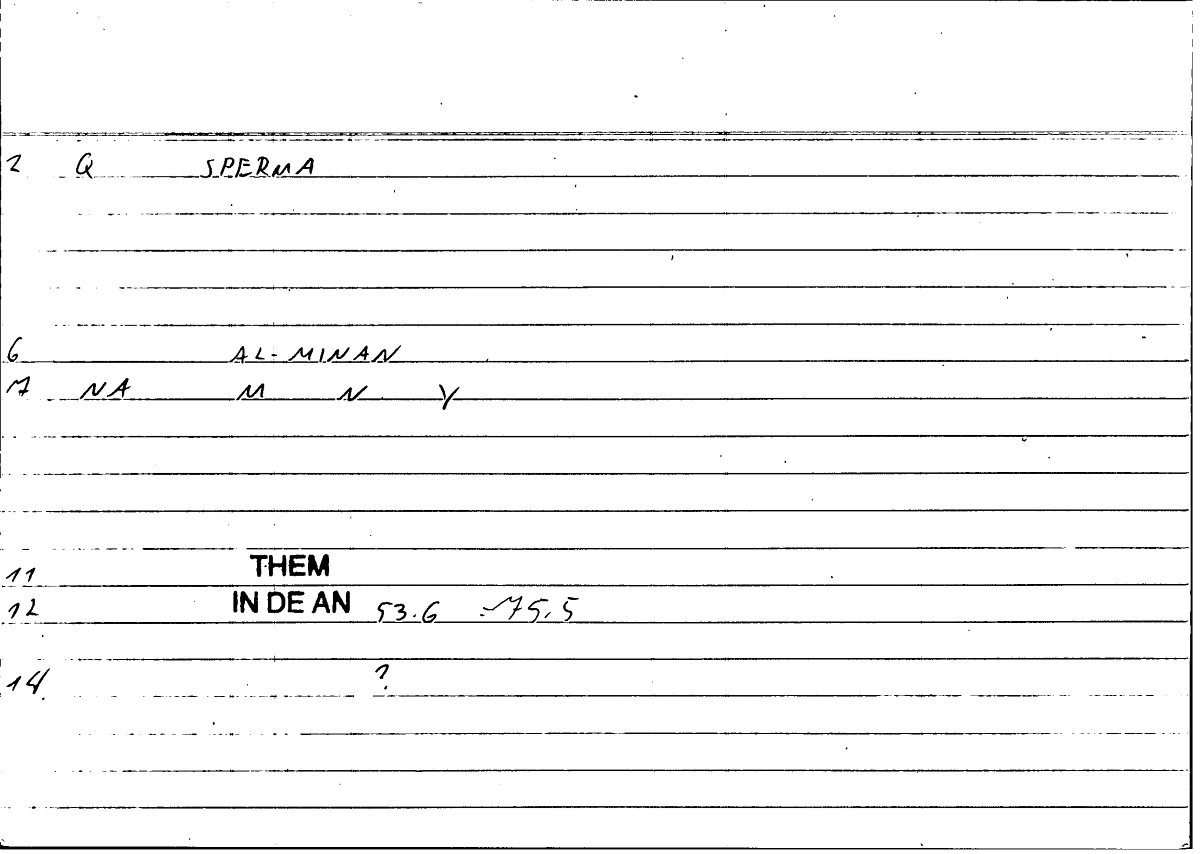 2 Q SPERMA
6 AL-MINAN
7 NA M N Y
11 THEM
12 IN DE AN 53.6 -75.5
14. ?